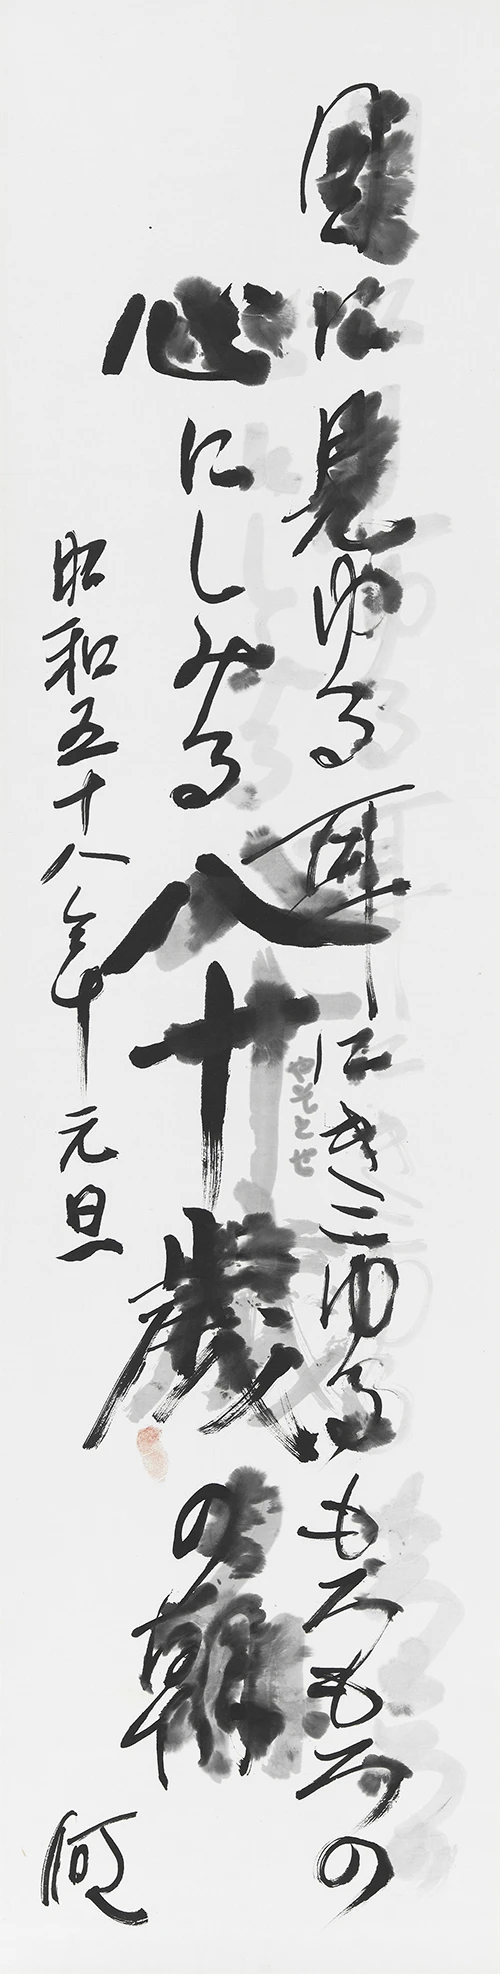 目に見ゆる耳にきこゆるもろもろの
心にしみる八十歳の朝
やそとせ
昭和五十八年元旦